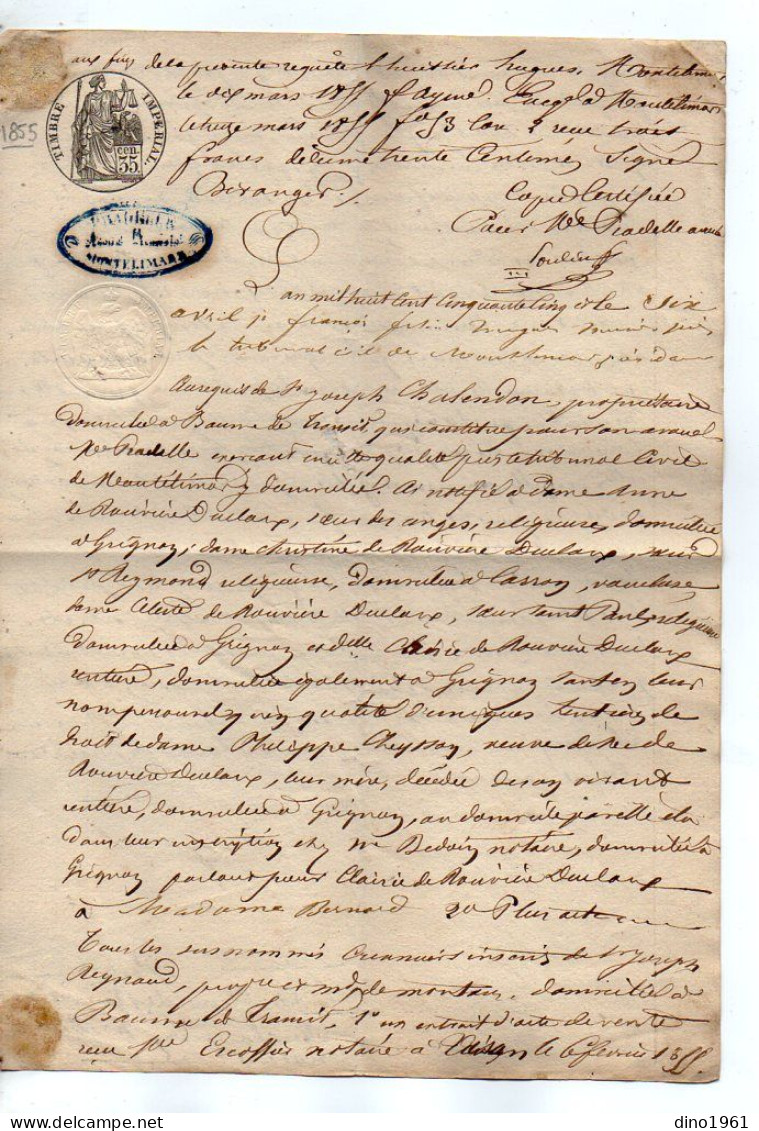 aux fins de la présente requête l'huissier hugues. Montélimar
le dix mars 1855 signé Enregé à Montélimar
le treize mars 1855 fo 53 Con 2 reçu trois
francs décime trente Centimes Signé
Béranger ./.
Copie Certifiée
Pour Me Pradelle avoué
TIMBRE IMPÉRIAL
35 cen.
1855
MONTELIMAR
L'an mil huit Cent Cinquante Cinq et le Six
avril je françois hugues huissier près
le tribunal civil de Montélimar
Au requis de Sr Joseph Chalendon, propriétaire
domicilié à Baume de Transit, qui constitue pour son avoué
Me Pradelle exerçant en cette qualité près le tribunal Civil
de Montélimar y domicilié. Ai notifié à Dame Anne
de Rouvière Duclaux, sœur des anges, religieuse, domiciliée
à Grignan, dame Christine de Rouvière Duclaux, sœur
St Reymond religieuse, domiciliée à vaucluse,
dame de Rouvière Duclaux, sœur Saint Paul religieuse
domiciliée à Grignan et Delle de Rouvière Duclaux
rentière, domiciliée également à Grignan tant en leur
nom personnel qu'en qualité d'uniques héritières de
droit de dame Philippe Cheysson, veuve de Mr de
Rouvière Duclaux, leur mère, décédée de son vivant
rentière, domiciliée à Grignan, au domicile par elle élu
dans leur inscription chez Me Bedoin notaire, domicilié à
Grignan parlant pour de Rouvière Duclaux
à Madame Bernard
Tous les susnommés créanciers inscrits de Sr Joseph
Reynaud, propre et md de moutons, domicilié à
Baume de Transit, 1º un extrait d'acte de vente
reçu Me Escoffier notaire à le 6 février 1855.
dino1961
delcampe.net